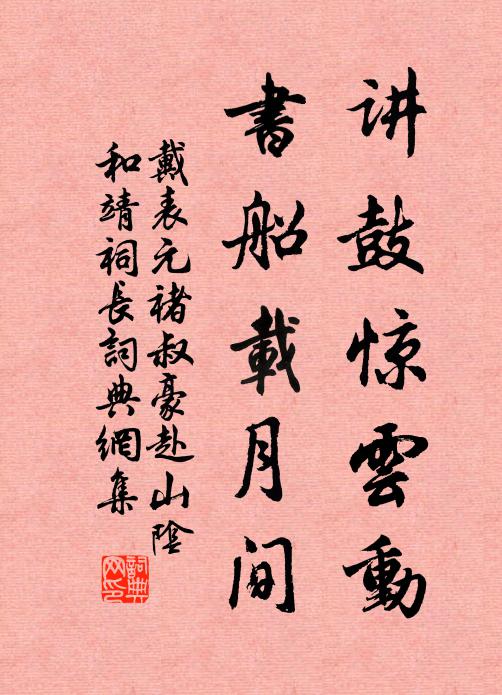 讲鼓惊雲動
書船載月间
戴表元褚叔豪赴山陰
和靖祠长詞典網集
詞典网印